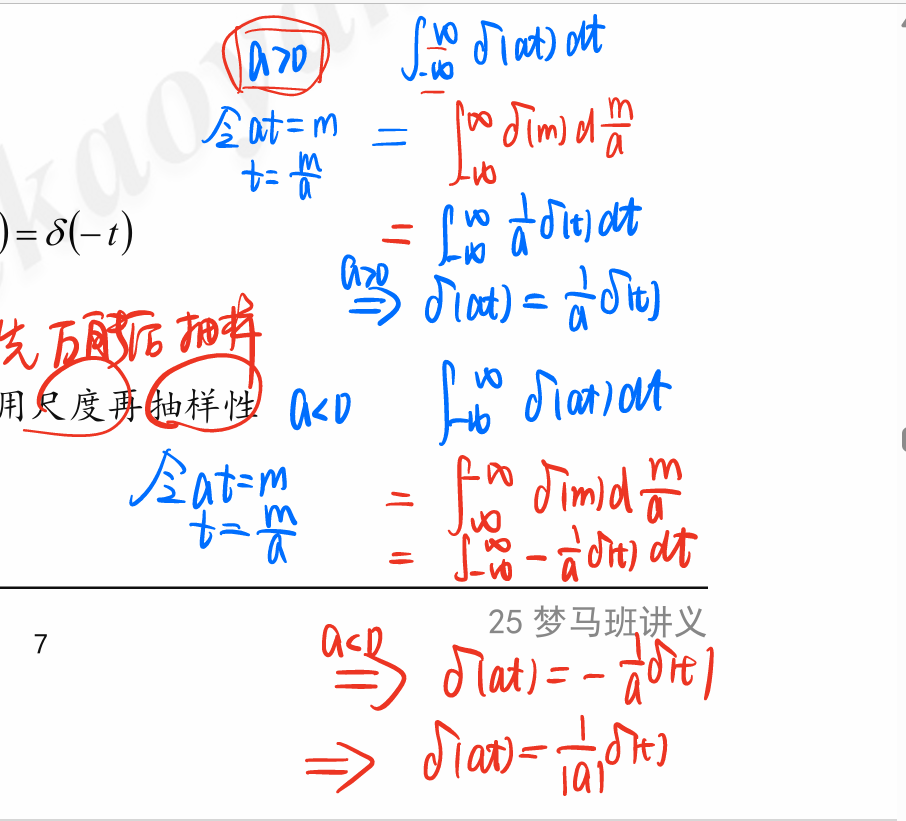 a>0 ∫_{-∞}^{∞} δ(at) dt
令 at = m = ∫_{-∞}^{∞} δ(m) d m/a
t = m/a
) = δ(-t) = ∫_{-∞}^{∞} 1/a δ(t) dt
a>0 ⇒ δ(at) = 1/a δ(t)
先 后 抽样
用尺度再抽样性 a<0 ∫_{-∞}^{∞} δ(at) dt
令 at = m = ∫_{∞}^{-∞} δ(m) d m/a
t = m/a = ∫_{-∞}^{∞} - 1/a δ(t) dt
25 梦马班讲义
7
a<0 ⇒ δ(at) = - 1/a δ(t)
⇒ δ(at) = 1/|a| δ(t)